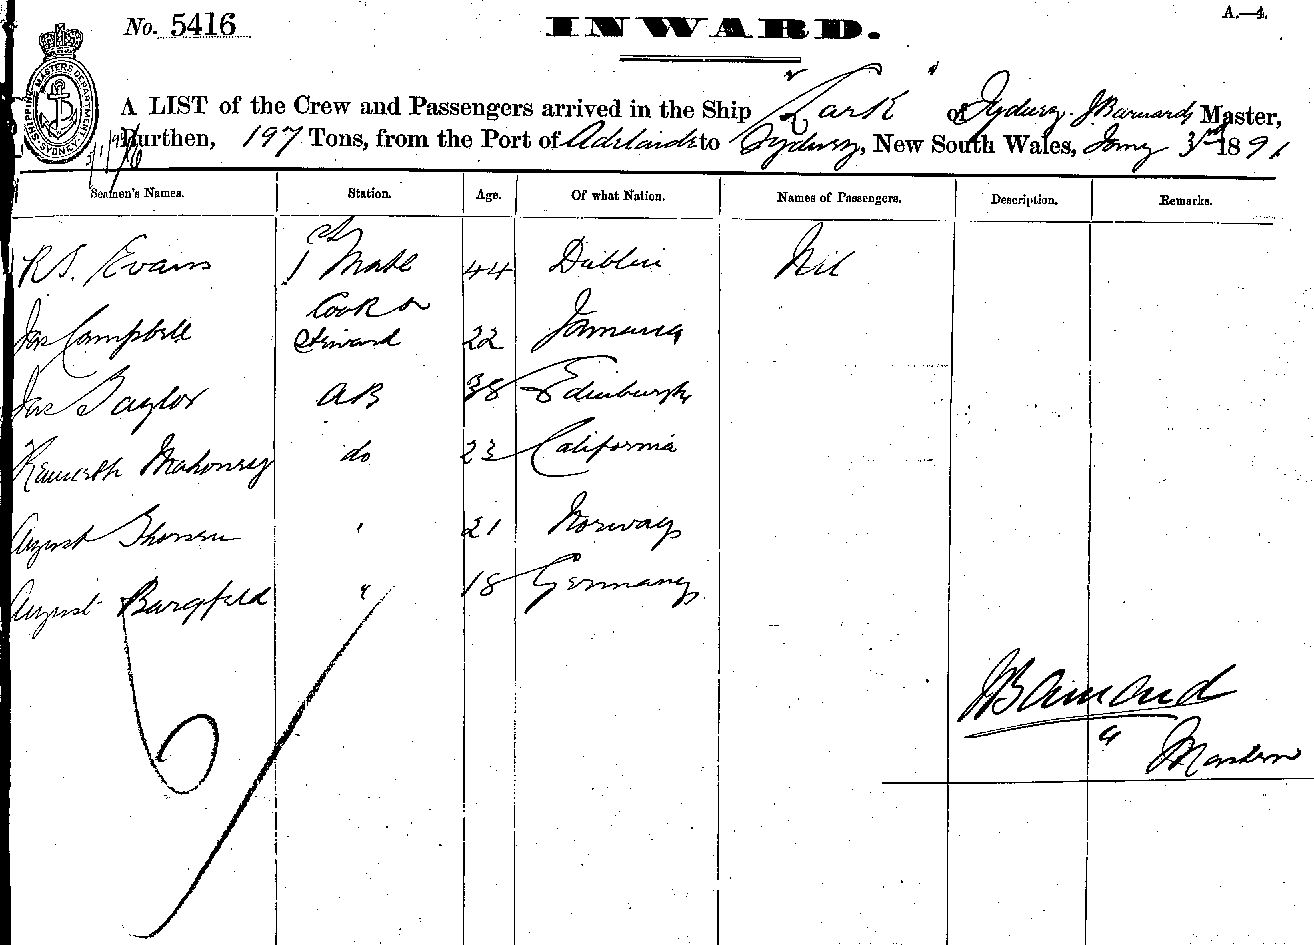 No. 5416
INWARD.
A.—4.
SHIPPING MASTERS DEPARTMENT SYDNEY
A LIST of the Crew and Passengers arrived in the Ship "Zark" of Sydney. J Barnard, Master,
Burthen, 197 Tons, from the Port of Adelaide to Sydney, New South Wales, Jany 3rd 1891
Seamen's Names. Station. Age. Of what Nation. Names of Passengers. Description. Remarks.
R S. Evans 1st Mate 44 Dublin Nil
Jas Campbell Cook & Steward 22 Jamaica
Jas Taylor AB 38 Edinburgh
Kenneth Mahoney do 23 California
August Thorsen " 21 Norway
August Bargfeld " 18 Germany
6
J Barnard
" Master